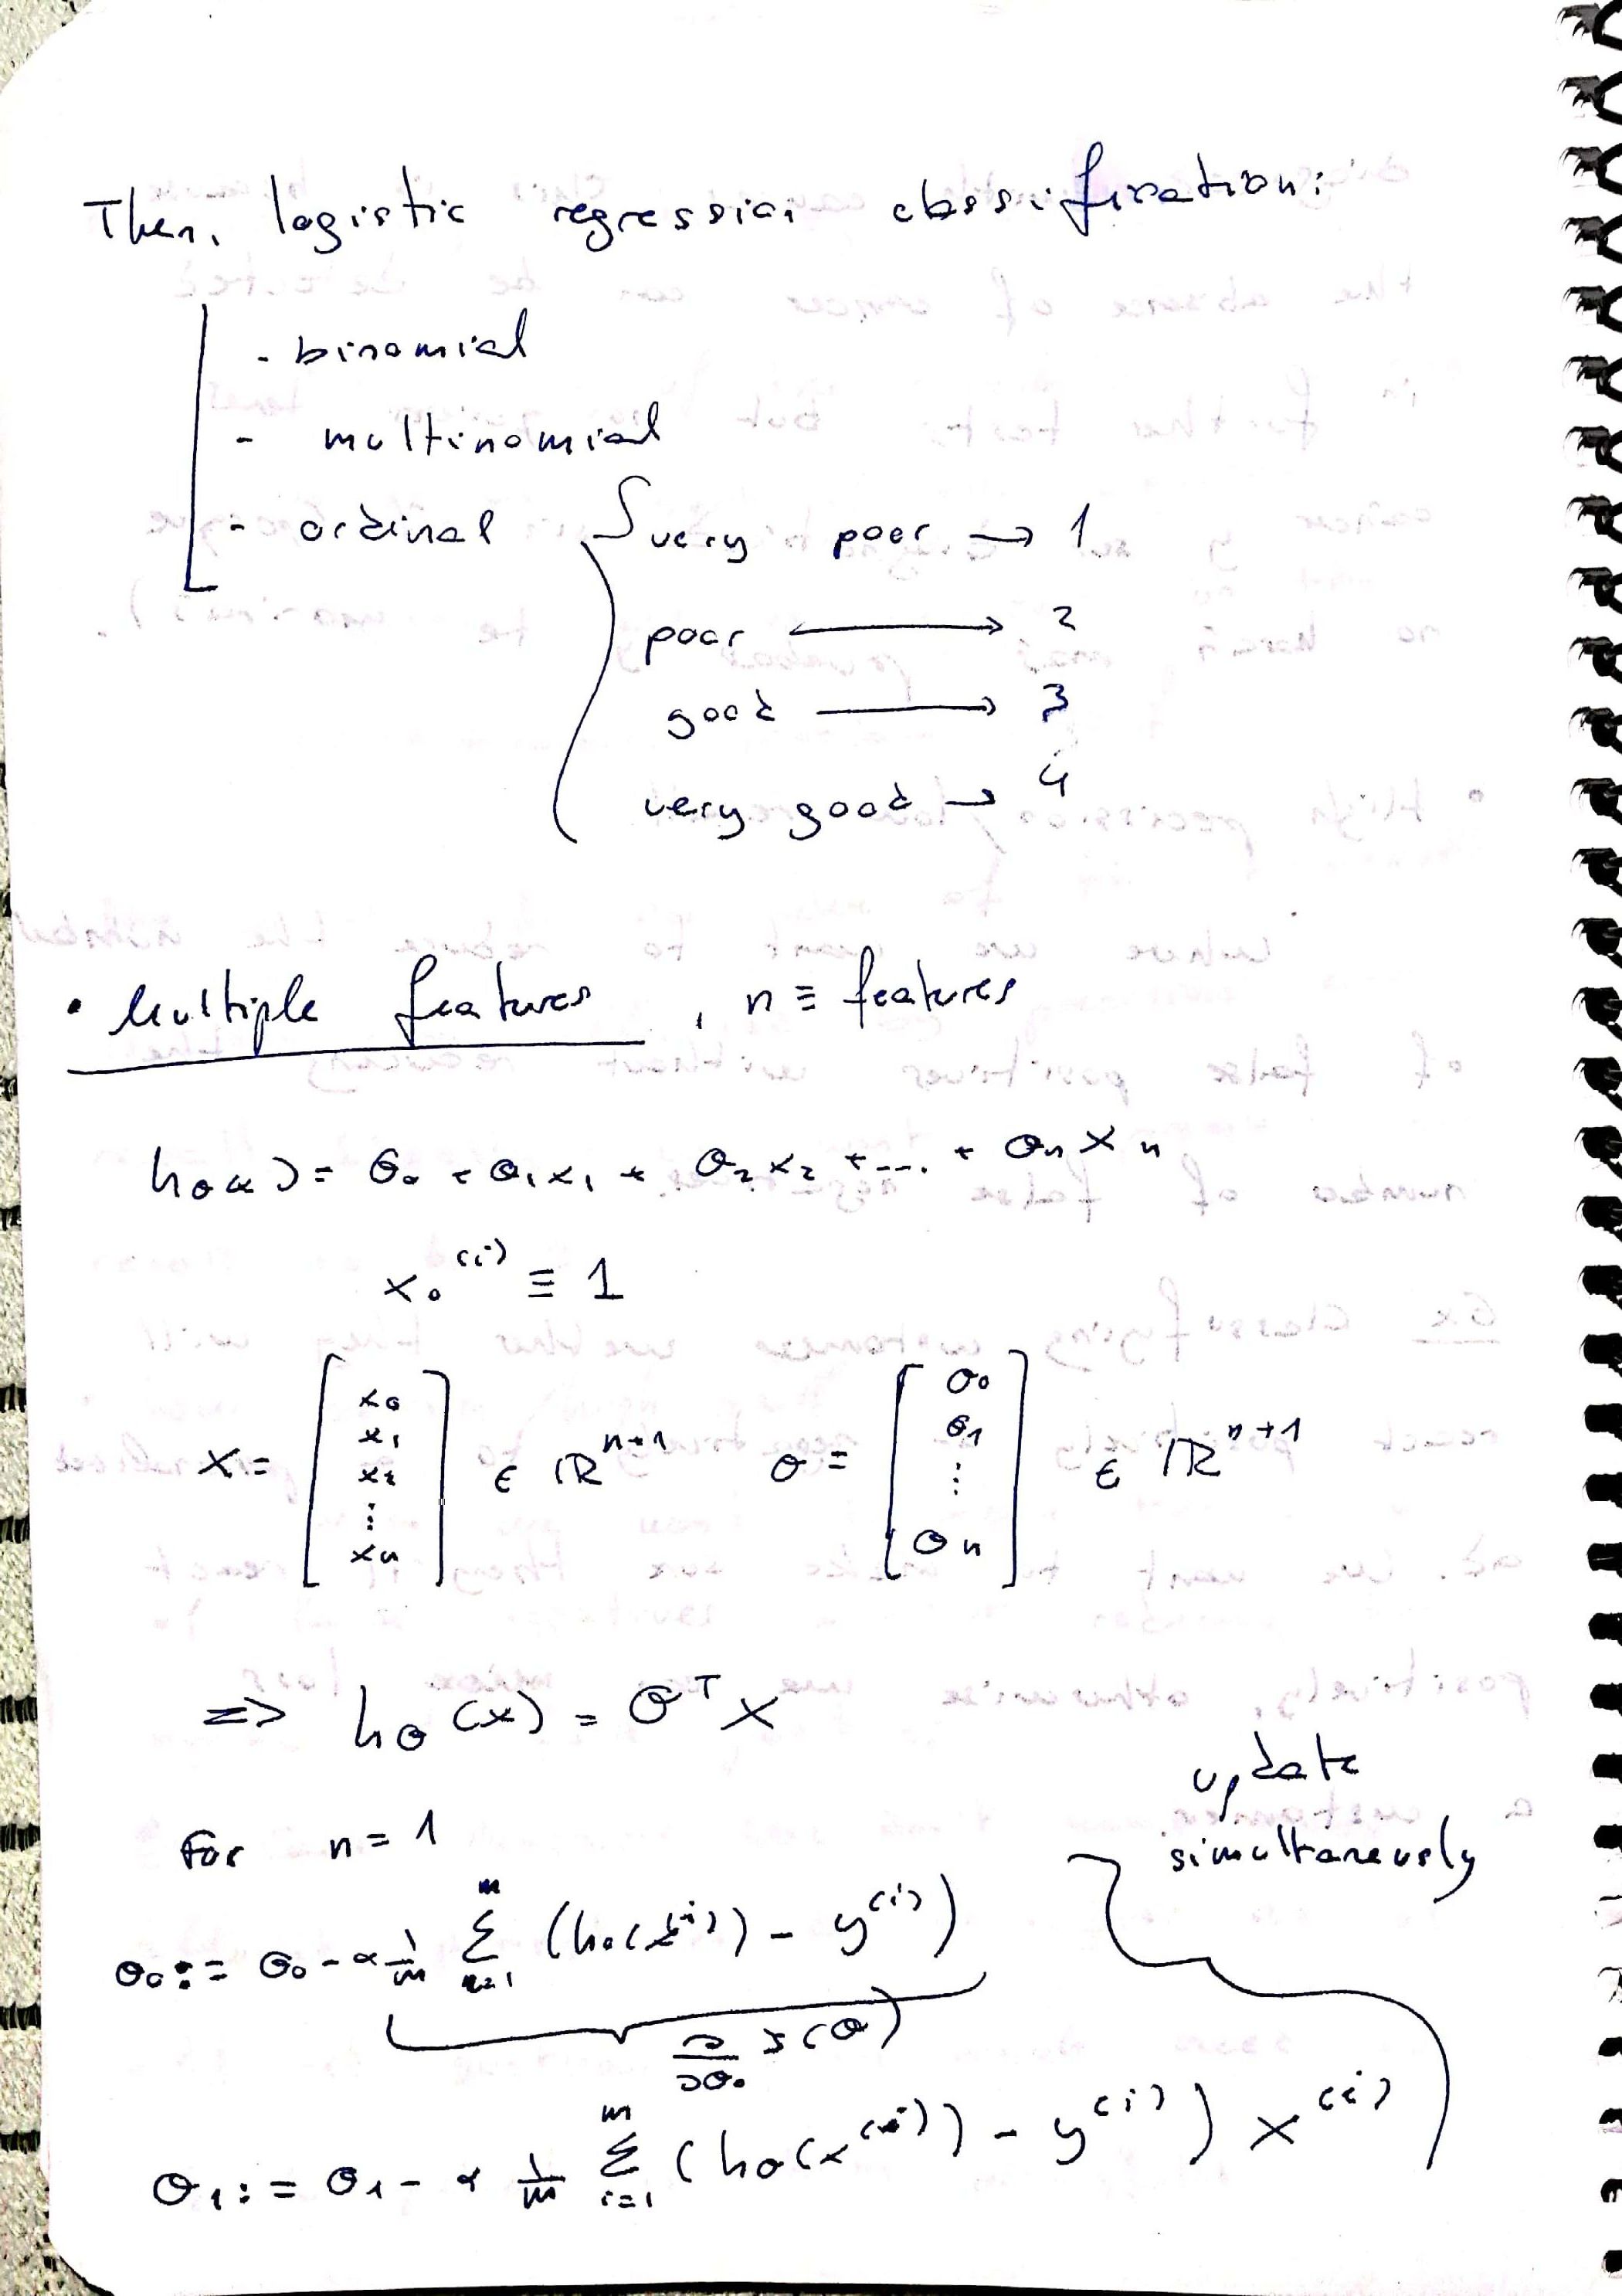 Then, logistic regression classification:
- binomial
- multinomial
- ordinal { very poor → 1
poor → 2
good → 3
very good → 4
• Multiple features , n ≡ features
hθ(x) = θ₀ + θ₁x₁ + θ₂x₂ + .... + θn xn
x₀⁽ⁱ⁾ ≡ 1
x = [x₀ x₁ x₂ ⋮ xn] ∈ ℝⁿ⁺¹ θ = [θ₀ θ₁ ⋮ θn] ∈ ℝⁿ⁺¹
=> hθ(x) = θᵀx
update
simultaneously
For n = 1
θ₀ := θ₀ - α 1/m Σ (hθ(x⁽ⁱ⁾) - y⁽ⁱ⁾)
∂/∂θ₀ J(θ)
θ₁ := θ₁ - α 1/m Σᵢ₌₁ᵐ (hθ(x⁽ⁱ⁾) - y⁽ⁱ⁾) x⁽ⁱ⁾